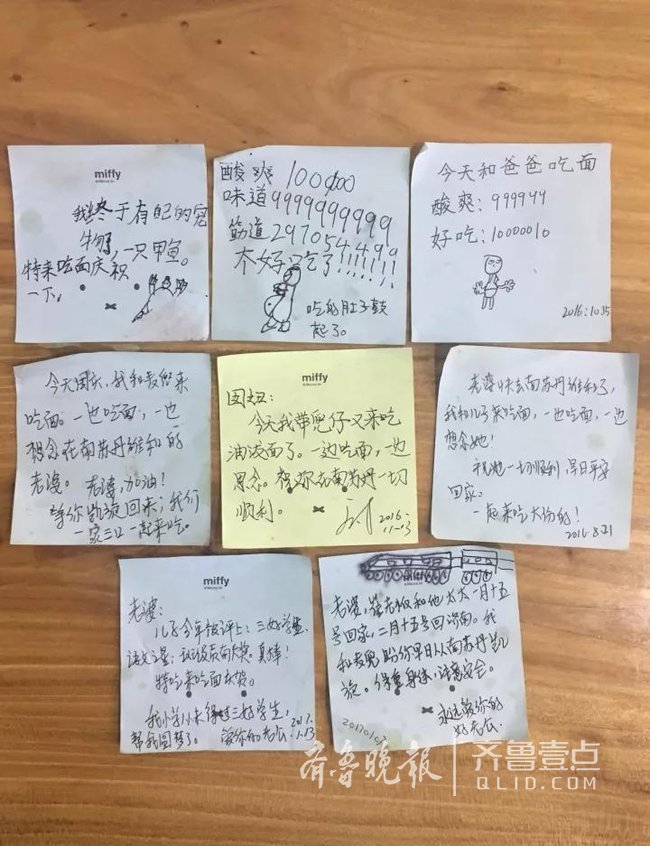 miffy
我终于有自己的宠
物了,一只甲鱼。
特来吃面庆祝
一下。
酸爽 100000
味道9999999999
筋道297054499
太好吃了!!!!!!!
吃的肚子鼓
起了。
今天和爸爸吃面
酸爽:999999
好吃:10000010
2016.10.15
今天周六,我和来
吃面。一边吃面,一边
想念在南苏丹维和的
老婆。老婆,加油!
等你凯旋回来,我们
一家三口一起来吃。
miffy
图妞:
今天我带儿仔又来吃
油泼面了。一边吃面,一边
思念。祝你在南苏丹一切
顺利。
2016.
11.13
老婆快去南苏丹维和了,
我和儿子来吃面,一边吃面,一边
想念她!
祝她一切顺利,早日平安
回家。
一起来吃大份的!
2016.8.21
miffy
老婆:
儿子今年被评上:三好学生、
语文之星,真棒!
特吃来吃面
我小学从未得过三好学生,
帮我圆梦了。
爱你的老公 2017.
1.13
老婆,和他太太一月十五
号回家,二月十五号回济南。我
和儿盼你早日从南苏丹凯
旋。保重身体,注意安全。
永远爱你的
好老公
齐鲁晚报
齐鲁壹点
QLID.COM